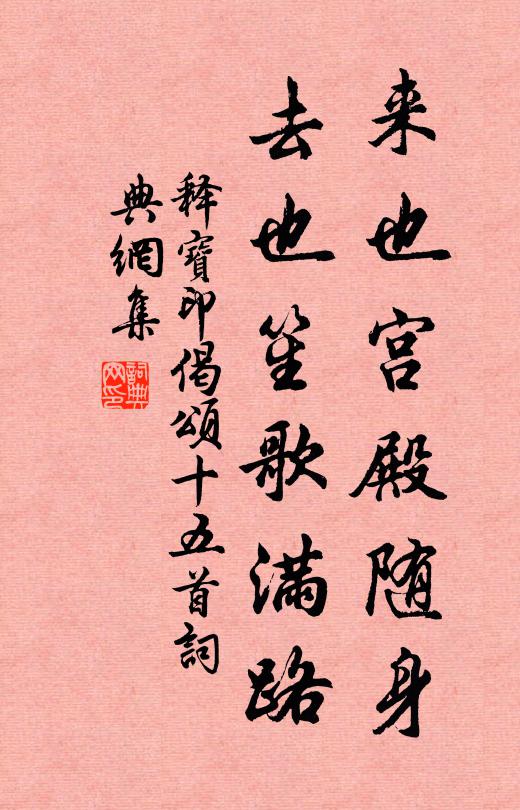 来也宫殿随身
去也笙歌满路
释寶印偈頌十五首詞
典網集
詞典网印